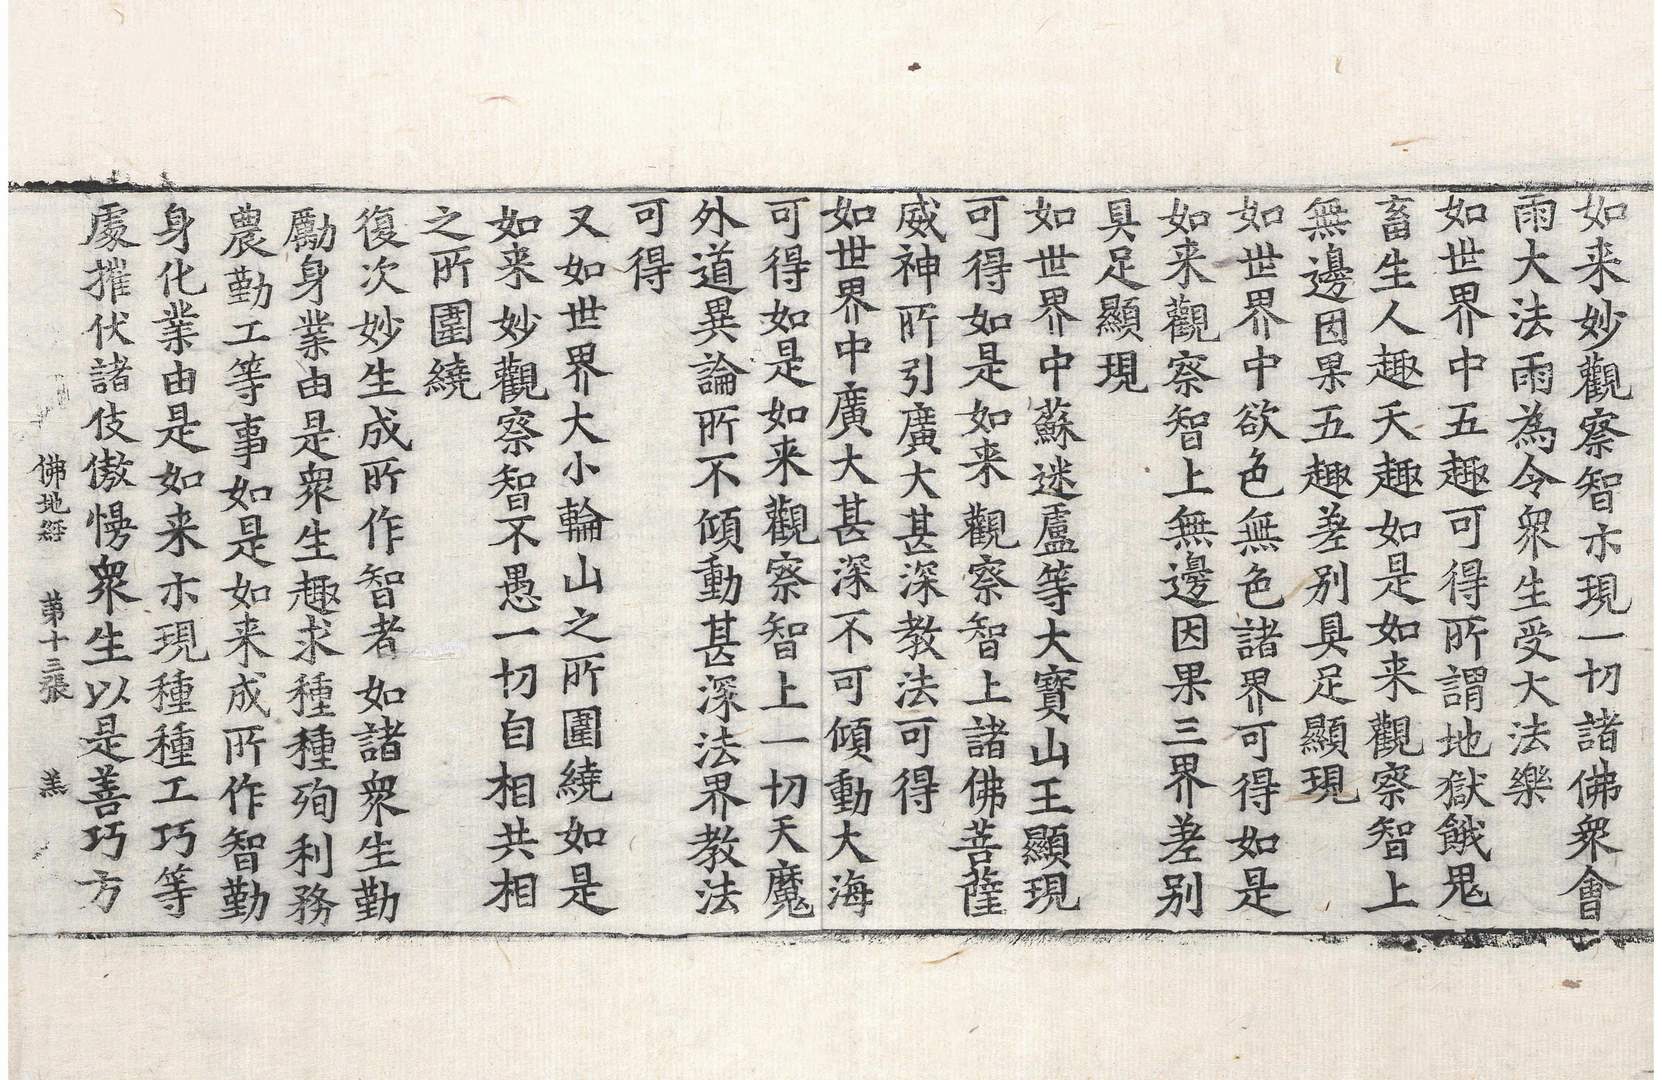 如来妙觀察智亦現一切諸佛衆會
雨大法雨為令衆生受大法樂
如世界中五趣可得所謂地獄餓鬼
畜生人趣天趣如是如来觀察智上
無邊因果五趣差别具足顯現
如世界中欲色無色諸界可得如是
如来觀察智上無邊因果三界差别
具足顯現
如世界中蘇迷盧等大寶山王顯現
可得如是如来觀察智上諸佛菩薩
威神所引廣大甚深教法可得
如世界中廣大甚深不可傾動大海
可得如是如来觀察智上一切天魔
外道異論所不傾動甚深法界教法
可得
又如世界大小輪山之所圍繞如是
如来妙觀察智不愚一切自相共相
之所圍繞
復次妙生成所作智者如諸衆生勤
勵身業由是衆生趣求種種殉利務
農勤工等事如是如来成所作智勤
身化業由是如来亦現種種工巧等
處摧伏諸伎傲慢衆生以是善巧方
佛地經 第十三張 羔